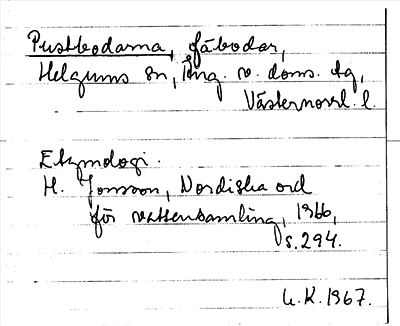 Pustbodarna, fäbodar,
Helgums sn, Ång. v. doms. tg,
Västernorrl. l.
Etymologi.
H. Jonsson, Nordiska ord
för vattensamling, 1966,
s. 294.
U.K. 1967.